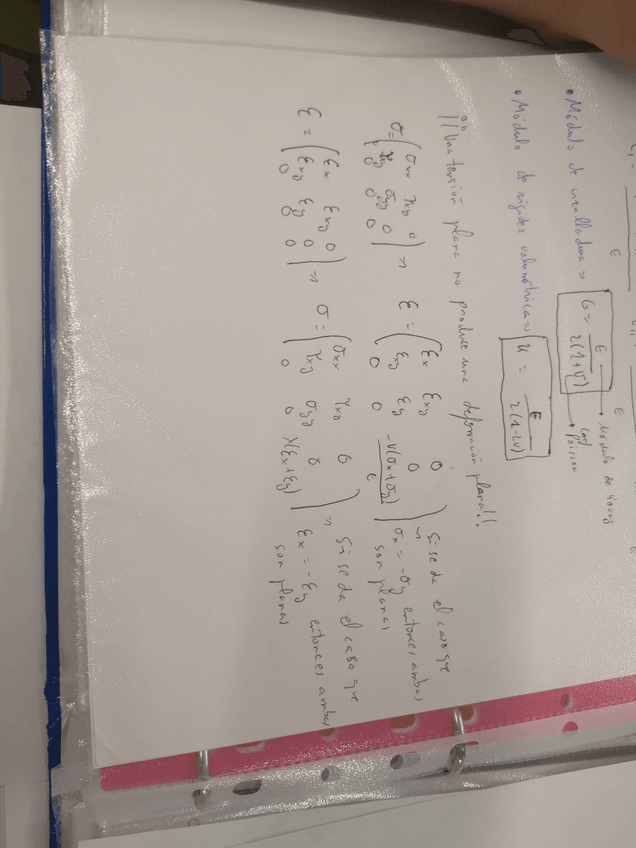 E
E
E
• Módulo de cizalladura => G = E / 2(1+ν) → Módulo de Young
→ coef Poisson
• Módulo de rigidez volumétrica => K = E / 2(1-2ν)
!! Una tensión plana no produce una deformación plana!!
σ = ( σxx τxy 0 ; τxy σyy 0 ; 0 0 0 ) => ε = ( εx εxy 0 ; εxy εy 0 ; 0 0 -ν(σx+σy)/E ) => Si se da el caso que
σx = -σy entonces ambas
son planas
ε = ( εx εxy 0 ; εxy εy 0 ; 0 0 0 ) => σ = ( σxx τxy 0 ; τxy σyy 0 ; 0 0 λ(εx+εy) ) => Si se da el caso que
εx = -εy entonces ambas
son planas